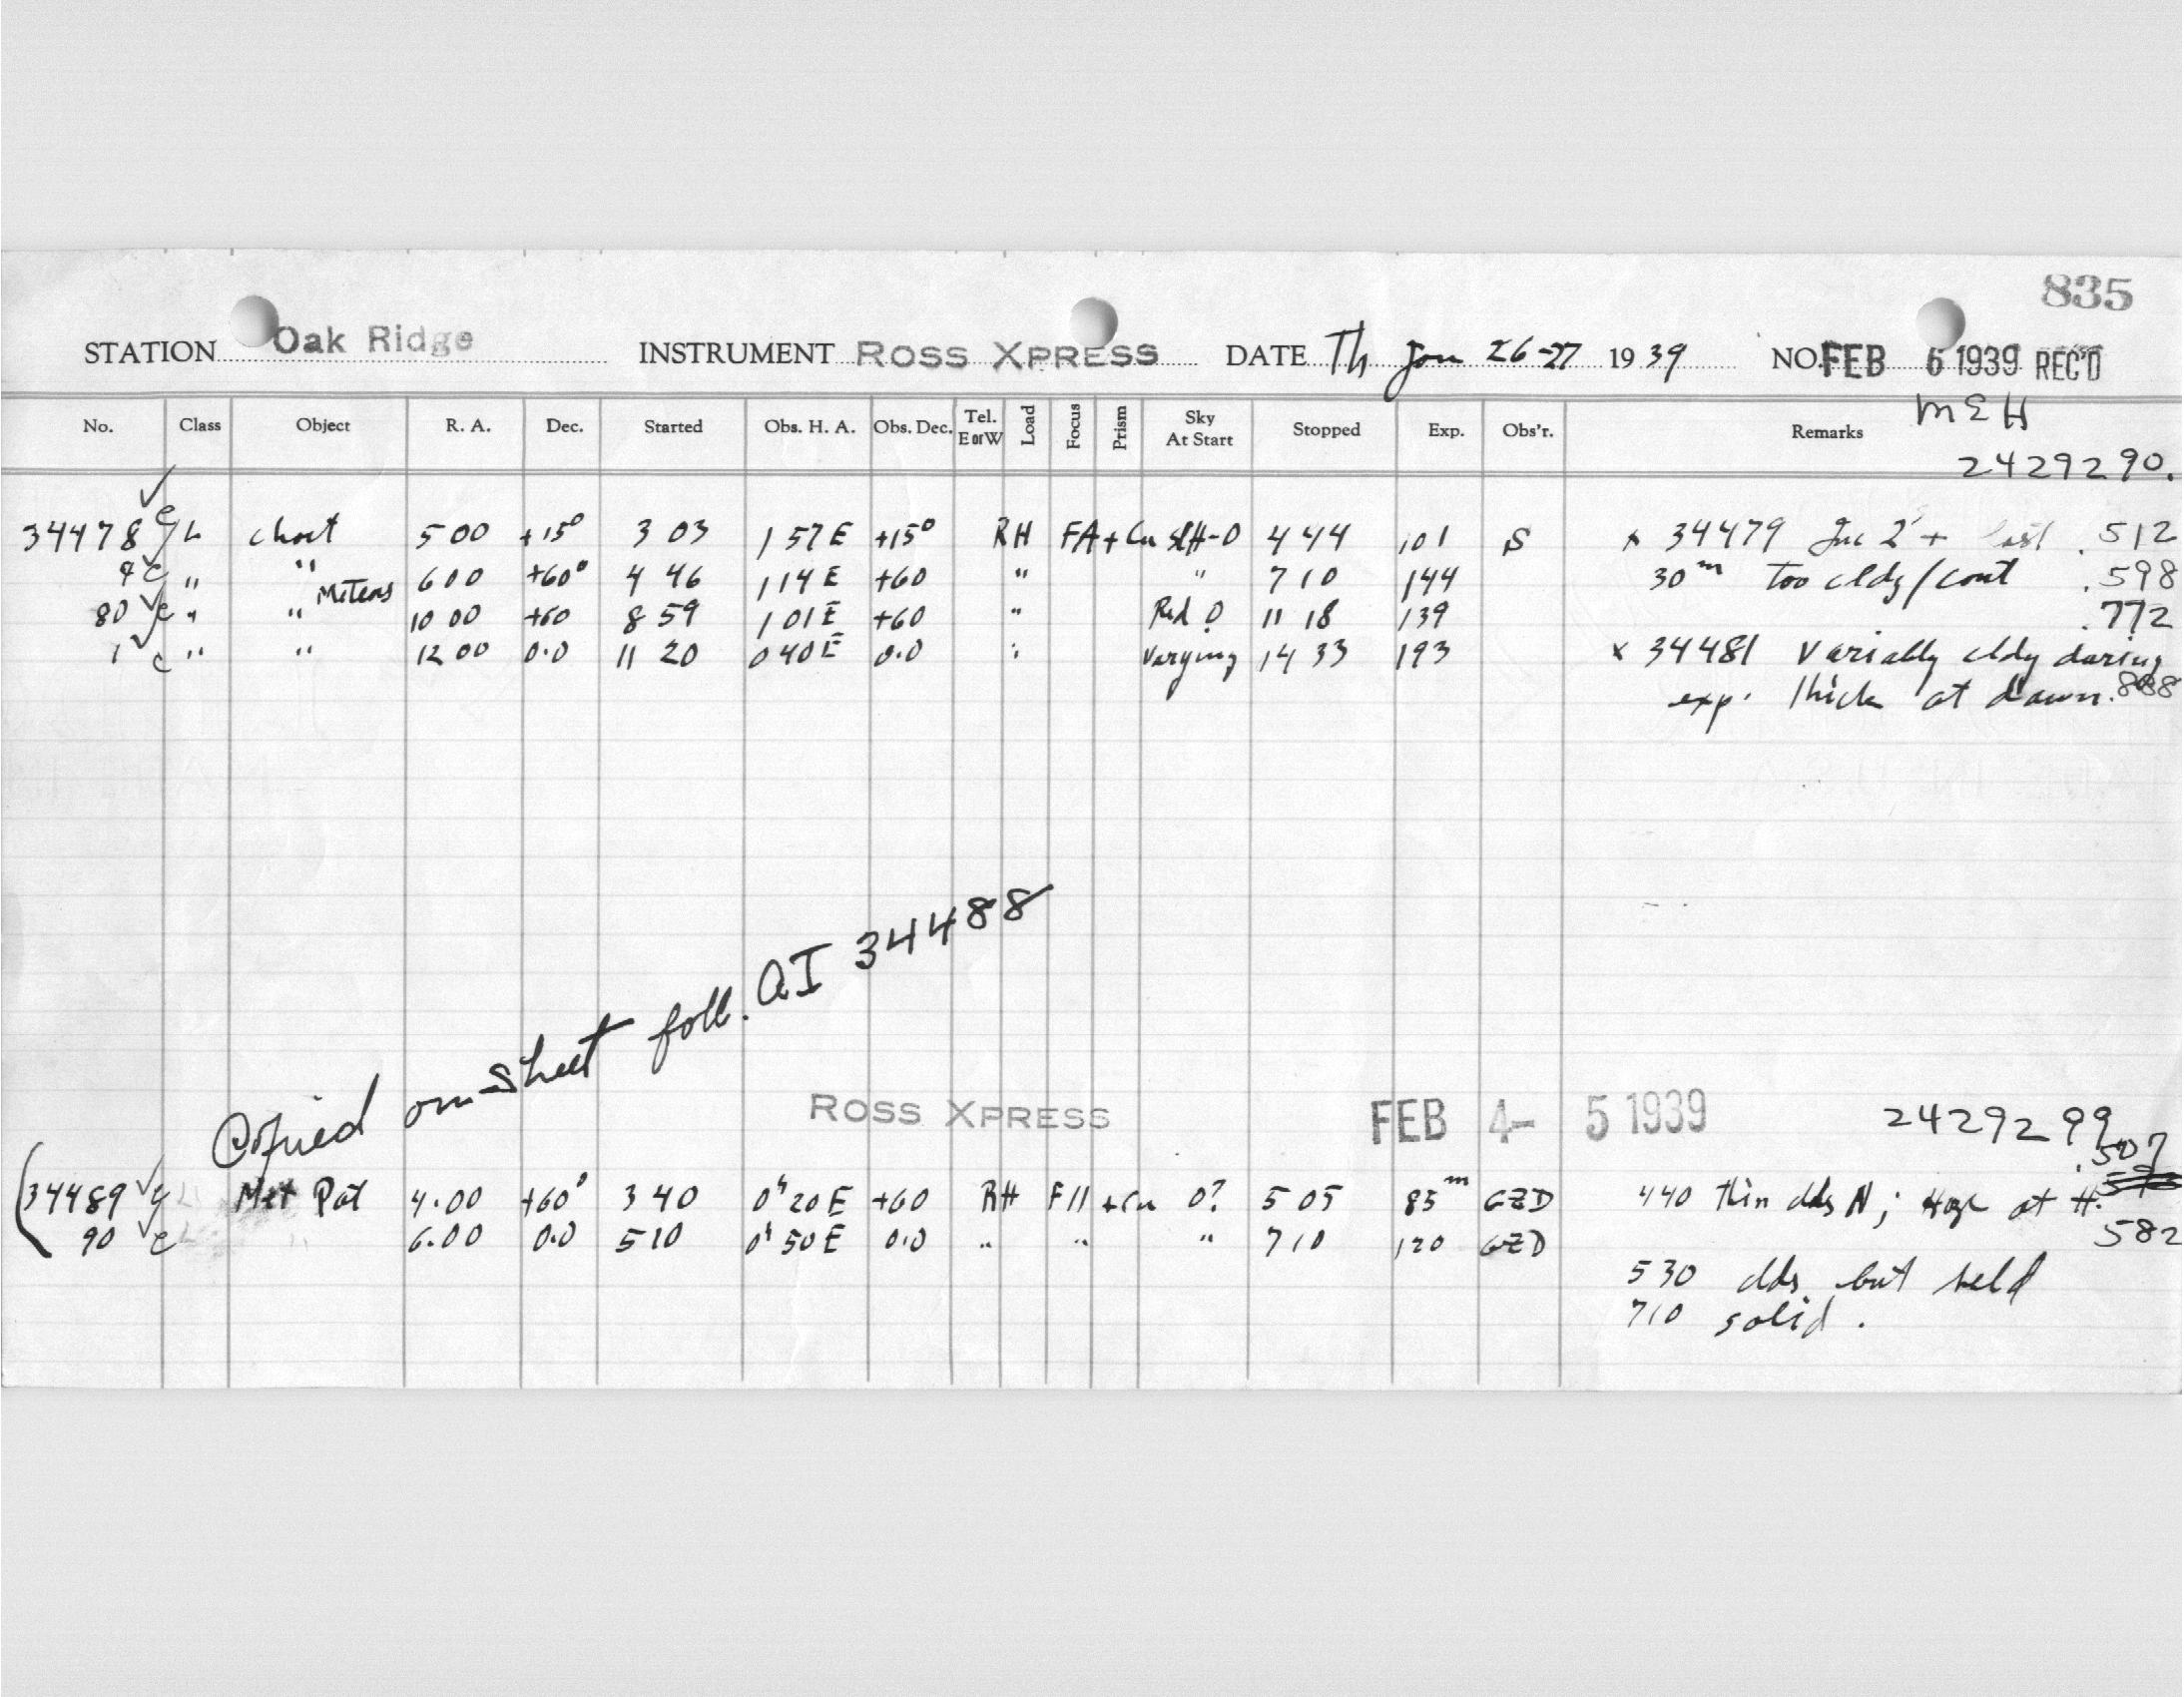 835
STATION Oak Ridge INSTRUMENT ROSS XPRESS DATE Th Jan 26-27 1939 NO. FEB 6 1939 REC'D
MEH
No. Class Object R. A. Dec. Started Obs. H. A. Obs. Dec. Tel. E or W Load Focus Prism Sky At Start Stopped Exp. Obs'r. Remarks
2429290.
34478 c L chart 5 00 +15° 3 03 1 57 E +15° RH FA + Cu slH-0 4 44 101 S x 34479 Inc 2s + last .512
9 c " " Meteors 6 00 +60° 4 46 1 14 E +60 " " 7 10 144 30m too cldy/cont .598
80 c " " 10 00 +60 8 59 1 01 E +60 " Red 0 11 18 139 .772
1 c " " 12 00 0.0 11 20 0 40 E 0.0 " Varying 14 33 193 x 34481 Variably cldy during
exp. thick at dawn. .888
Copied on sheet foll. AI 34488
ROSS XPRESS FEB 4-5 1939 2429299
.507
(34489 Met Pat 4.00 +60° 3 40 0h 20 E +60 RH F11 + Cu 0? 5 05 85m GZD 440 thin clds N; Haze at H.
90 c 6.00 0.0 5 10 0h 50 E 0.0 " " " 7 10 120 GZD 582
530 clds but held
710 solid.